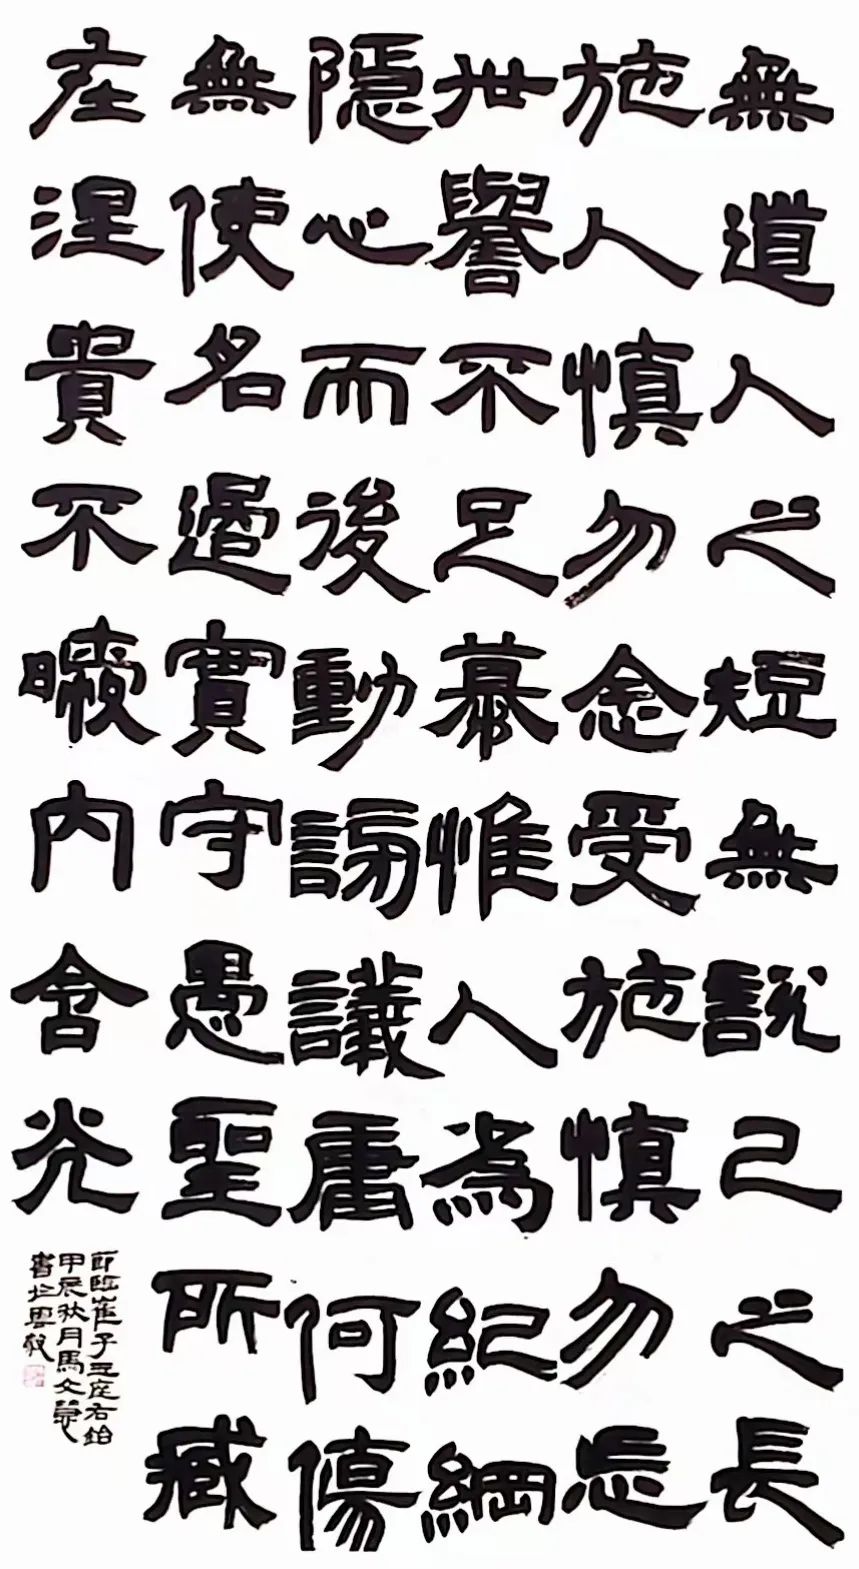 無道人之短無說己之長
施人慎勿念受施慎勿忘
世譽不足慕惟人為紀綱
隱心而後動謗議庸何傷
無使名過實守愚聖所臧
在涅貴不曖內含光
節臨崔子玉座右銘
甲辰秋月馬文
書於雲